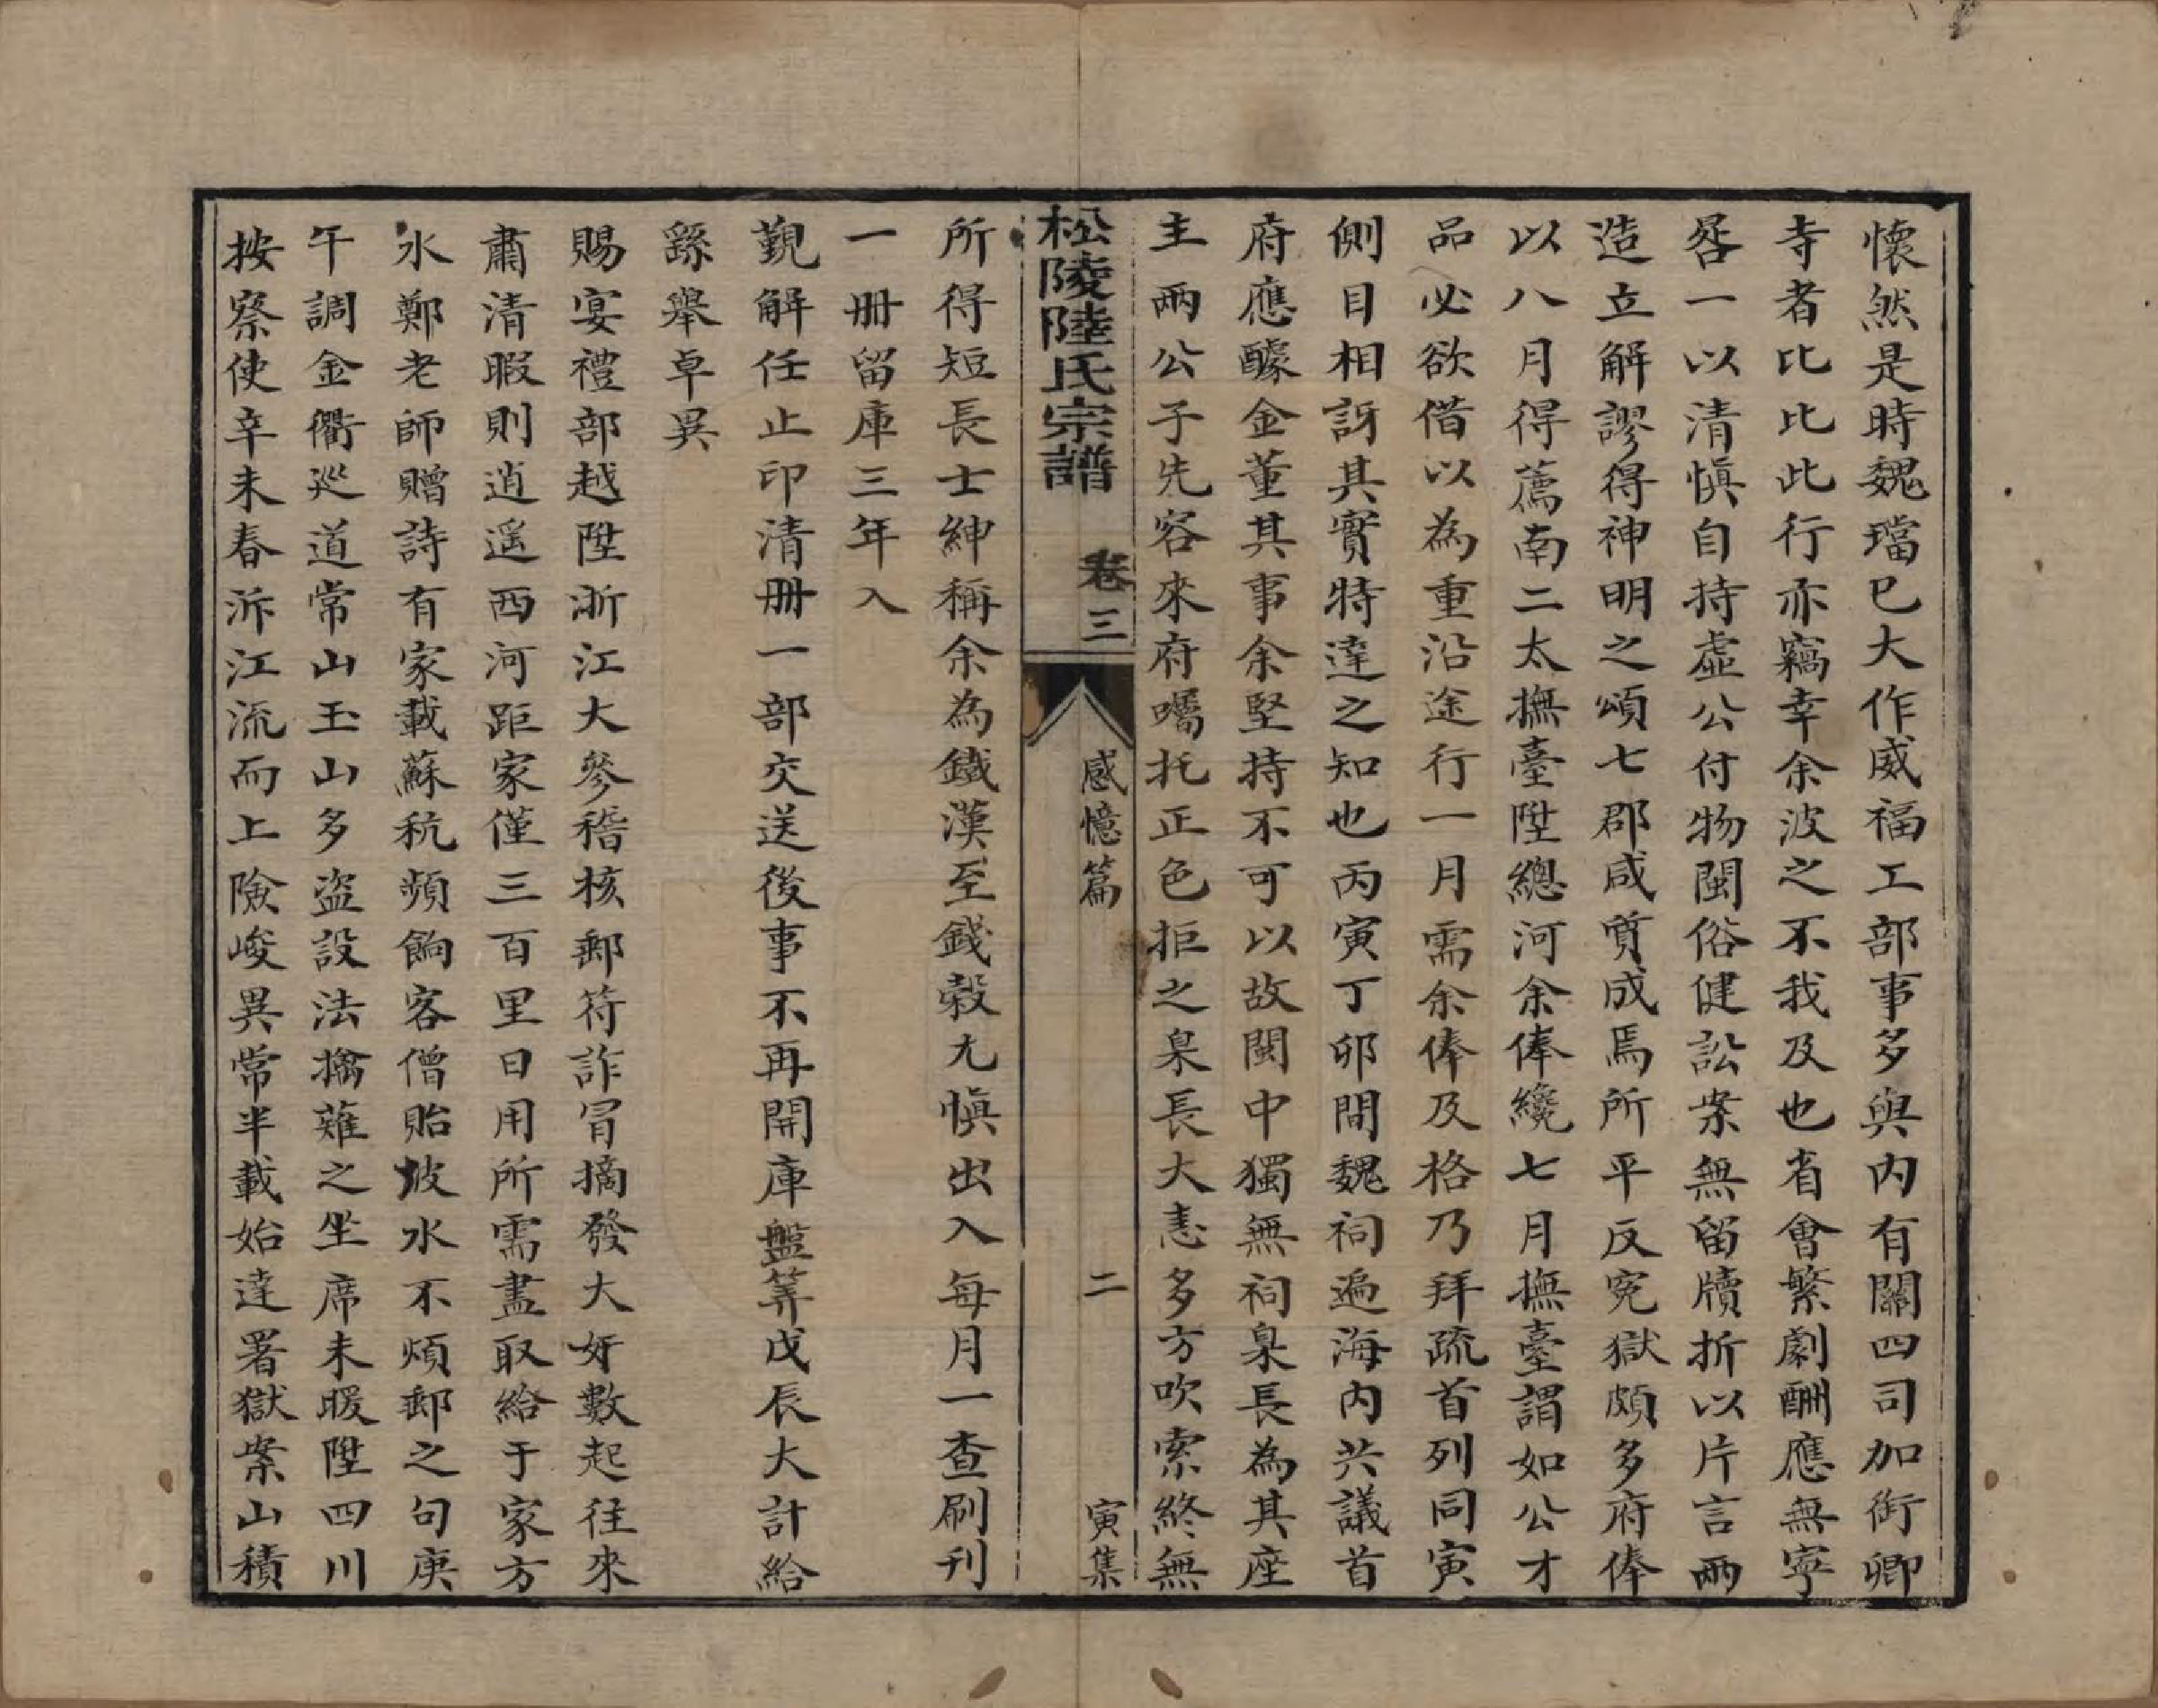 懷然是時魏璫已大作威福工部事多與内有關四司加銜卿
寺者比比此行亦竊幸余波之不我及也省會繁劇酬應無寧
晷一以清慎自持虛公付物閩俗健訟案無留牘折以片言兩
造立解謬得神明之頌七郡咸質成焉所平反寃獄頗多府俸
以八月得薦南二太撫臺陞總河余俸纔七月撫臺謂如公才
品必欲借以為重沿途行一月需余俸及格乃拜疏首列同寅
側目相訝其實特達之知也丙寅丁卯間魏祠遍海内共議首
府應醵金董其事余堅持不可以故閩中獨無祠臬長為其座
主兩公子先容來府囑托正色拒之臬長大恚多方吹索終無
松陵陸氏宗譜 卷三 感憶篇 二 寅集
所得短長士紳稱余為鐵漢至錢穀尤慎出入每月一查刷刊
一册留庫三年入
觐解任止印清册一部交送後事不再開庫盤筭戊辰大計給
繇舉卓異
賜宴禮部越陞浙江大參稽核郵符詐冐摘發大奸數起往來
肅清暇則逍遥西河距家僅三百里日用所需盡取給于家方
水鄭老師贈詩有家載蘇秔頻餉客僧貽坡水不煩郵之句庚
午調金衢巡道常山玉山多盗設法擒薙之坐席未暖陞四川
按察使辛未春泝江流而上險峻異常半載始達署獄案山積